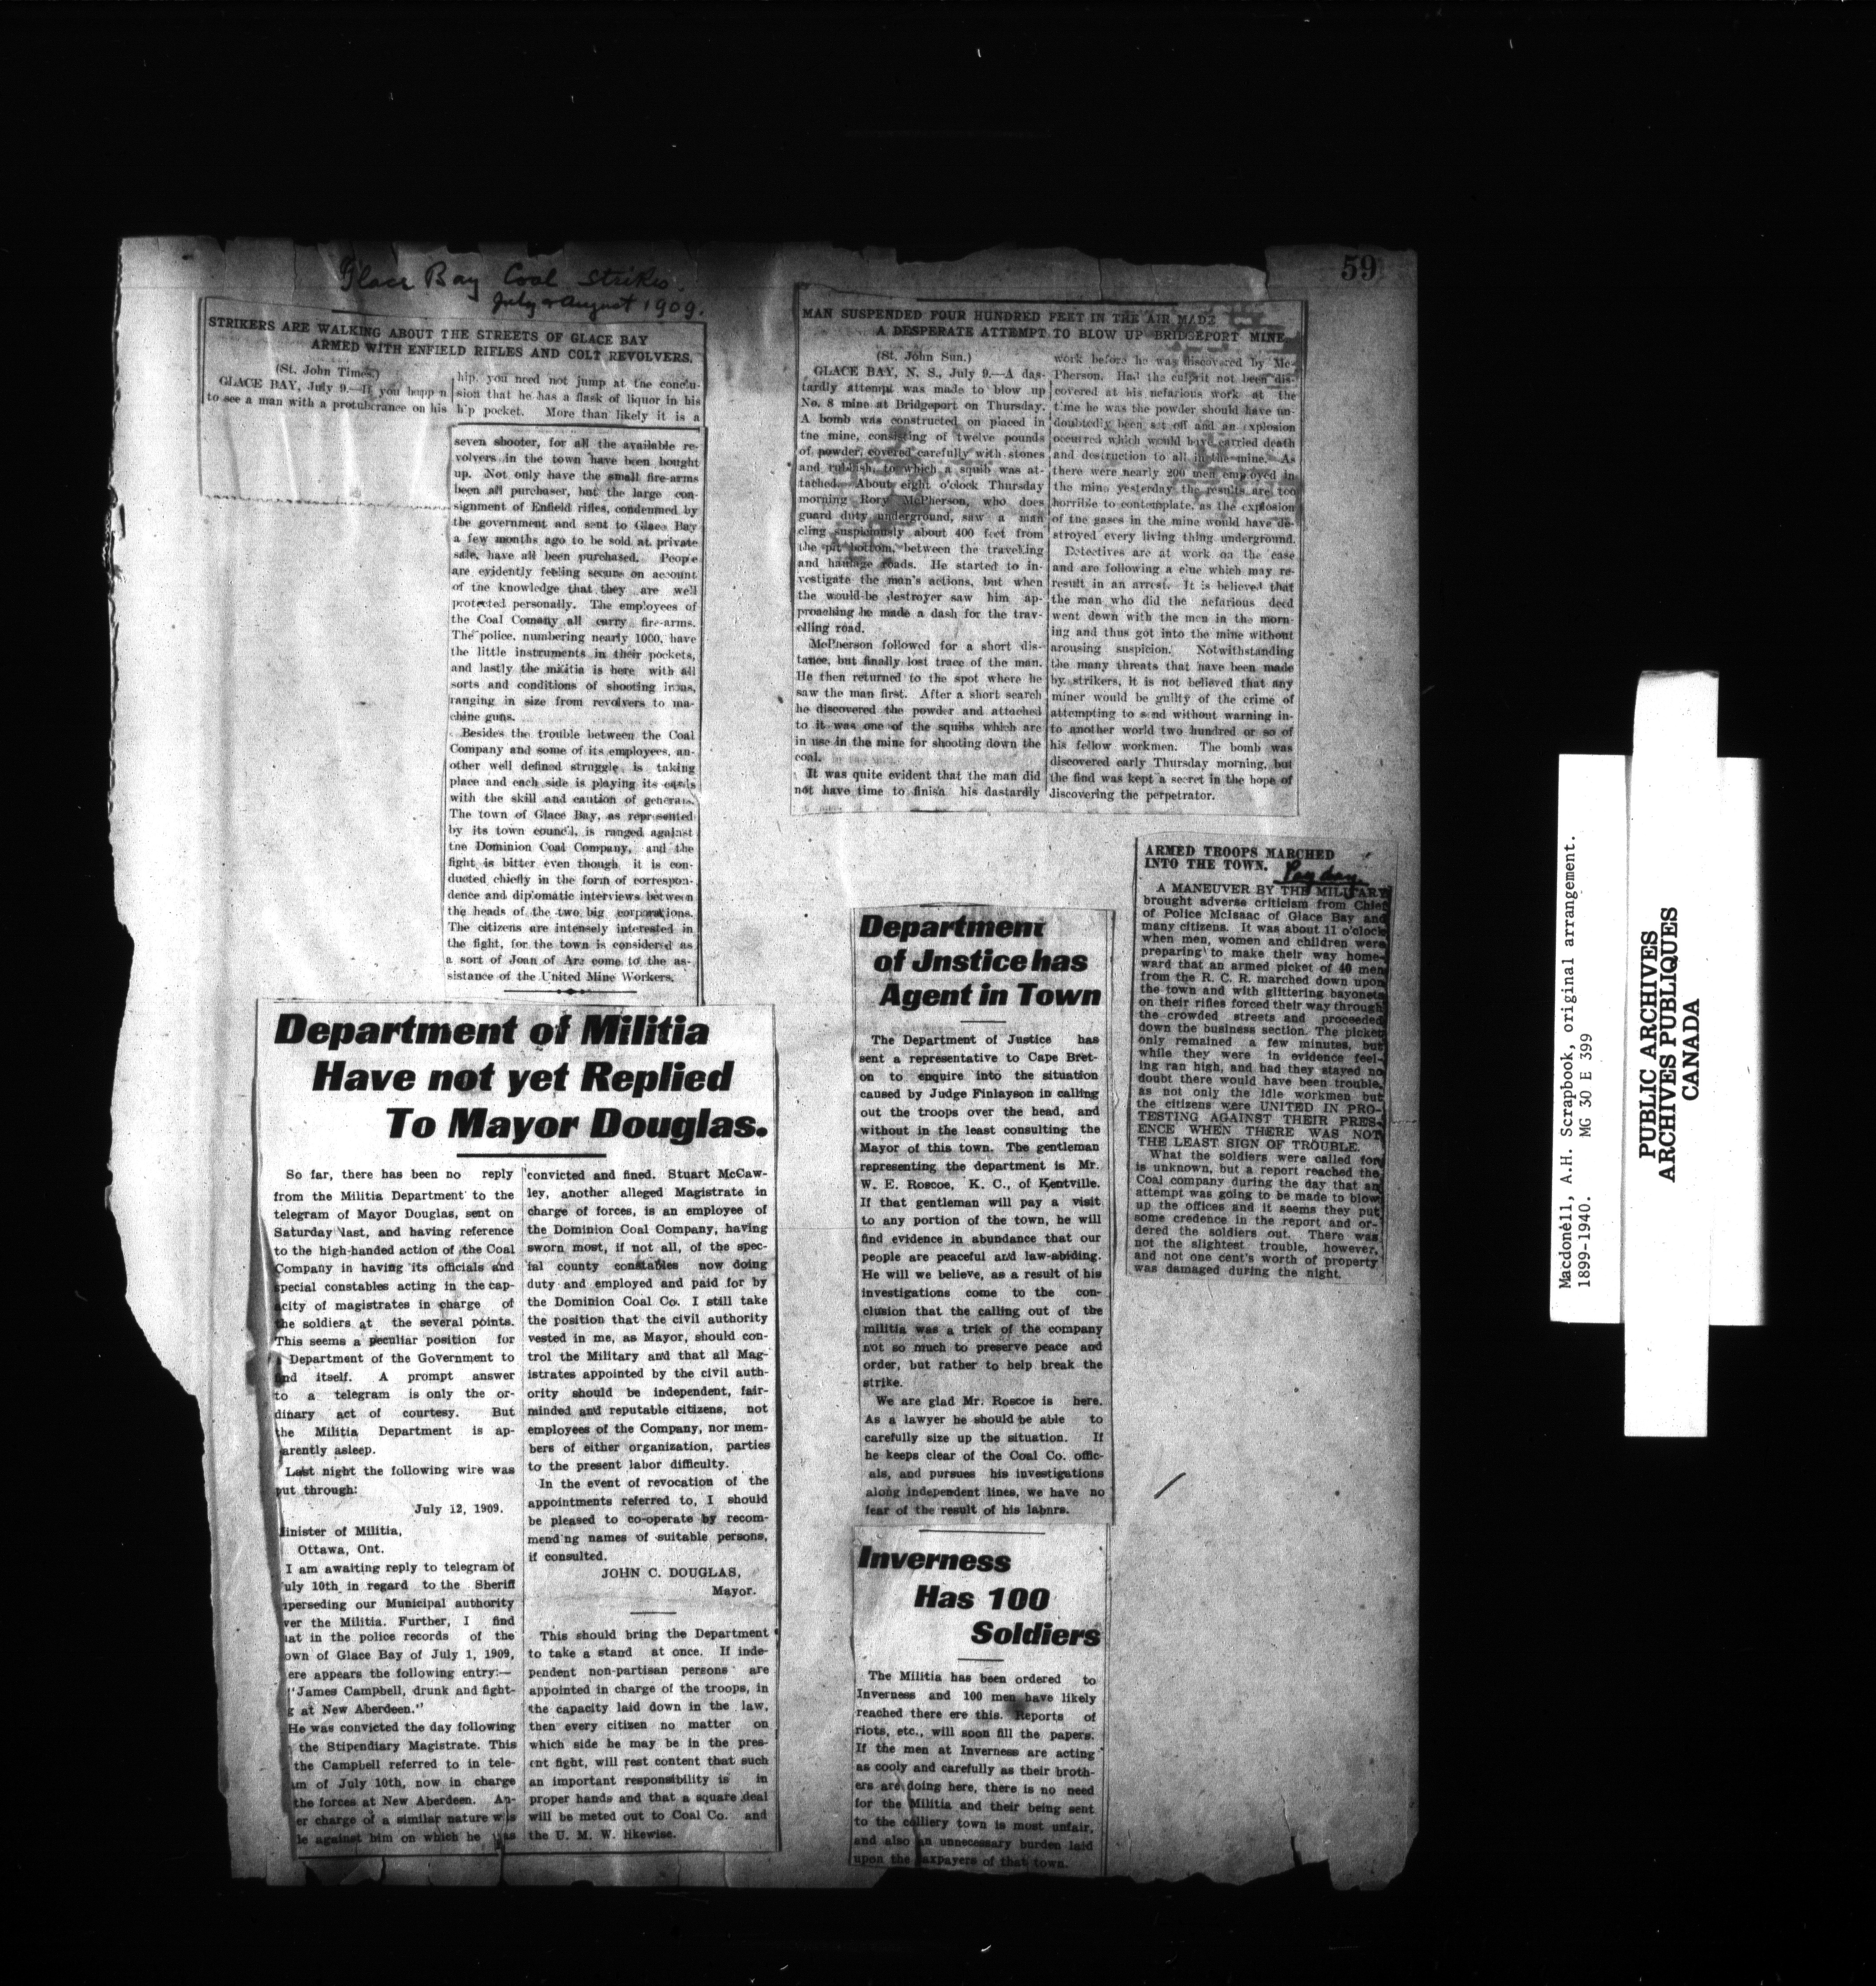 59
Glace Bay Coal Strike.
July & August 1909.
STRIKERS ARE WALKING ABOUT THE STREETS OF GLACE BAY
ARMED WITH ENFIELD RIFLES AND COLT REVOLVERS.
(St. John Times)
GLACE BAY, July 9.—If you happ n
to see a man with a protuberance on his
hip, you need not jump at the conclu-
sion that he has a flask of liquor in his
hip pocket. More than likely it is a
seven shooter, for all the available re-
volvers in the town have been bought
up. Not only have the small fire-arms
been all purchaser, but the large con-
signment of Enfield rifles, condemned by
the government and sent to Glace Bay
a few months ago to be sold at private
sale, have all been purchased. People
are evidently feeling secure on account
of the knowledge that they are well
protected personally. The employees of
the Coal Comany all carry fire-arms.
The police, numbering nearly 1000, have
the little instruments in their pockets,
and lastly the militia is here with all
sorts and conditions of shooting irons,
ranging in size from revolvers to ma-
chine guns.
Besides the trouble between the Coal
Company and some of its employees, an-
other well defined struggle is taking
place and each side is playing its cards
with the skill and caution of generals.
The town of Glace Bay, as represented
by its town council, is ranged against
the Dominion Coal Company, and the
fight is bitter even though it is con-
ducted chiefly in the form of correspon-
dence and diplomatic interviews between
the heads of the two big corporations.
The citizens are intensely interested in
the fight, for the town is considered as
a sort of Joan of Arc come to the as-
sistance of the United Mine Workers.
Department of Militia
Have not yet Replied
To Mayor Douglas.
So far, there has been no reply
from the Militia Department to the
telegram of Mayor Douglas, sent on
Saturday last, and having reference
to the high-handed action of the Coal
Company in having its officials and
special constables acting in the cap-
acity of magistrates in charge of
the soldiers at the several points.
This seems a peculiar position for
Department of the Government to
find itself. A prompt answer
to a telegram is only the or-
dinary act of courtesy. But
the Militia Department is ap-
parently asleep.
Last night the following wire was
put through:
July 12, 1909.
inister of Militia,
Ottawa, Ont.
I am awaiting reply to telegram of
uly 10th in regard to the Sheriff
perseding our Municipal authority
ver the Militia. Further, I find
at in the police records of the
own of Glace Bay of July 1, 1909,
ere appears the following entry:—
"James Campbell, drunk and fight-
g at New Aberdeen."
He was convicted the day following
the Stipendiary Magistrate. This
the Campbell referred to in tele-
m of July 10th, now in charge
the forces at New Aberdeen. An-
er charge of a similar nature was
le against him on which he was
convicted and fined. Stuart McCaw-
ley, another alleged Magistrate in
charge of forces, is an employee of
the Dominion Coal Company, having
sworn most, if not all, of the spec-
ial county constables now doing
duty and employed and paid for by
the Dominion Coal Co. I still take
the position that the civil authority
vested in me, as Mayor, should con-
trol the Military and that all Mag-
istrates appointed by the civil auth-
ority should be independent, fair-
minded and reputable citizens, not
employees of the Company, nor mem-
bers of either organization, parties
to the present labor difficulty.
In the event of revocation of the
appointments referred to, I should
be pleased to co-operate by recom-
mend'ng names of suitable persons,
if consulted.
JOHN C. DOUGLAS,
Mayor.
This should bring the Department
to take a stand at once. If inde-
pendent non-partisan persons are
appointed in charge of the troops, in
the capacity laid down in the law,
then every citizen no matter on
which side he may be in the pres-
ent fight, will rest content that such
an important responsibility is in
proper hands and that a square deal
will be meted out to Coal Co. and
the U. M. W. likewise.
MAN SUSPENDED FOUR HUNDRED FEET IN THE AIR MADE
A DESPERATE ATTEMPT TO BLOW UP BRIDGEPORT MINE
(St. John Sun.)
GLACE BAY, N. S., July 9.—A das-
tardly attempt was made to blow up
No. 8 mine at Bridgeport on Thursday.
A bomb was constructed on placed in
the mine, consisting of twelve pounds
of powder, covered carefully with stones
and rubbish, to which a squib was at-
tached. About eight o'clock Thursday
morning Rory McPherson, who does
guard duty underground, saw a man
cling suspiciously about 400 feet from
the pit bottom, between the traveling
and haulage roads. He started to in-
vestigate the man's actions, but when
the would-be destroyer saw him ap-
proaching he made a dash for the trav-
elling road.
McPherson followed for a short dis-
tance, but finally lost trace of the man.
He then returned to the spot where he
saw the man first. After a short search
he discovered the powder and attached
to it was one of the squibs which are
in use in the mine for shooting down the
coal.
It was quite evident that the man did
not have time to finish his dastardly
work before he was discovered by Mc-
Pherson. Had the culprit not been dis-
covered at his nefarious work at the
time he was the powder should have un-
doubtedly been set off and an explosion
occurred which would have carried death
and destruction to all in the mine. As
there were nearly 200 men employed in
the mine yesterday the results are too
horrible to contemplate, as the explosion
of the gases in the mine would have de-
stroyed every living thing underground.
Detectives are at work on the case
and are following a clue which may re-
result in an arrest. It is believed that
the man who did the nefarious deed
went down with the men in the morn-
ing and thus got into the mine without
arousing suspicion. Notwithstanding
the many threats that have been made
by strikers, it is not believed that any
miner would be guilty of the crime of
attempting to send without warning in-
to another world two hundred or so of
his fellow workmen. The bomb was
discovered early Thursday morning, but
the find was kept a secret in the hope of
discovering the perpetrator.
Department
of Jnstice has
Agent in Town
The Department of Justice has
sent a representative to Cape Bret-
on to enquire into the situation
caused by Judge Finlayson in calling
out the troops over the head, and
without in the least consulting the
Mayor of this town. The gentleman
representing the department is Mr.
W. E. Roscoe, K. C., of Kentville.
If that gentleman will pay a visit
to any portion of the town, he will
find evidence in abundance that our
people are peaceful and law-abiding.
He will we believe, as a result of his
investigations come to the con-
clusion that the calling out of the
militia was a trick of the company
not so much to preserve peace and
order, but rather to help break the
strike.
We are glad Mr. Roscoe is here.
As a lawyer he should be able to
carefully size up the situation. If
he keeps clear of the Coal Co. offic-
als, and pursues his investigations
along independent lines, we have no
fear of the result of his labnrs.
Inverness
Has 100
Soldiers
The Militia has been ordered to
Inverness and 100 men have likely
reached there ere this. Reports of
riots, etc., will soon fill the papers.
If the men at Inverness are acting
as cooly and carefully as their broth-
ers are doing here, there is no need
for the Militia and their being sent
to the colliery town is most unfair,
and also an unnecessary burden laid
upon the taxpayers of that town.
ARMED TROOPS MARCHED
INTO THE TOWN.
Pay day
A MANEUVER BY THE MILITARY
brought adverse criticism from Chief
of Police McIsaac of Glace Bay and
many citizens. It was about 11 o'clock
when men, women and children were
preparing to make their way home-
ward that an armed picket of 40 men
from the R. C. R. marched down upon
the town and with glittering bayonets
on their rifles forced their way through
the crowded streets and proceeded
down the business section. The picket
only remained a few minutes, but
while they were in evidence feel-
ing ran high, and had they stayed no
doubt there would have been trouble,
as not only the idle workmen but
the citizens were UNITED IN PRO-
TESTING AGAINST THEIR PRES-
ENCE WHEN THERE WAS NOT
THE LEAST SIGN OF TROUBLE.
What the soldiers were called for
is unknown, but a report reached the
Coal company during the day that an
attempt was going to be made to blow
up the offices and it seems they put
some credence in the report and or-
dered the soldiers out. There was
not the slightest trouble, however,
and not one cent's worth of property
was damaged during the night.
Macdonell, A.H. Scrapbook, original arrangement.
1899-1940. MG 30 E 399
PUBLIC ARCHIVES
ARCHIVES PUBLIQUES
CANADA